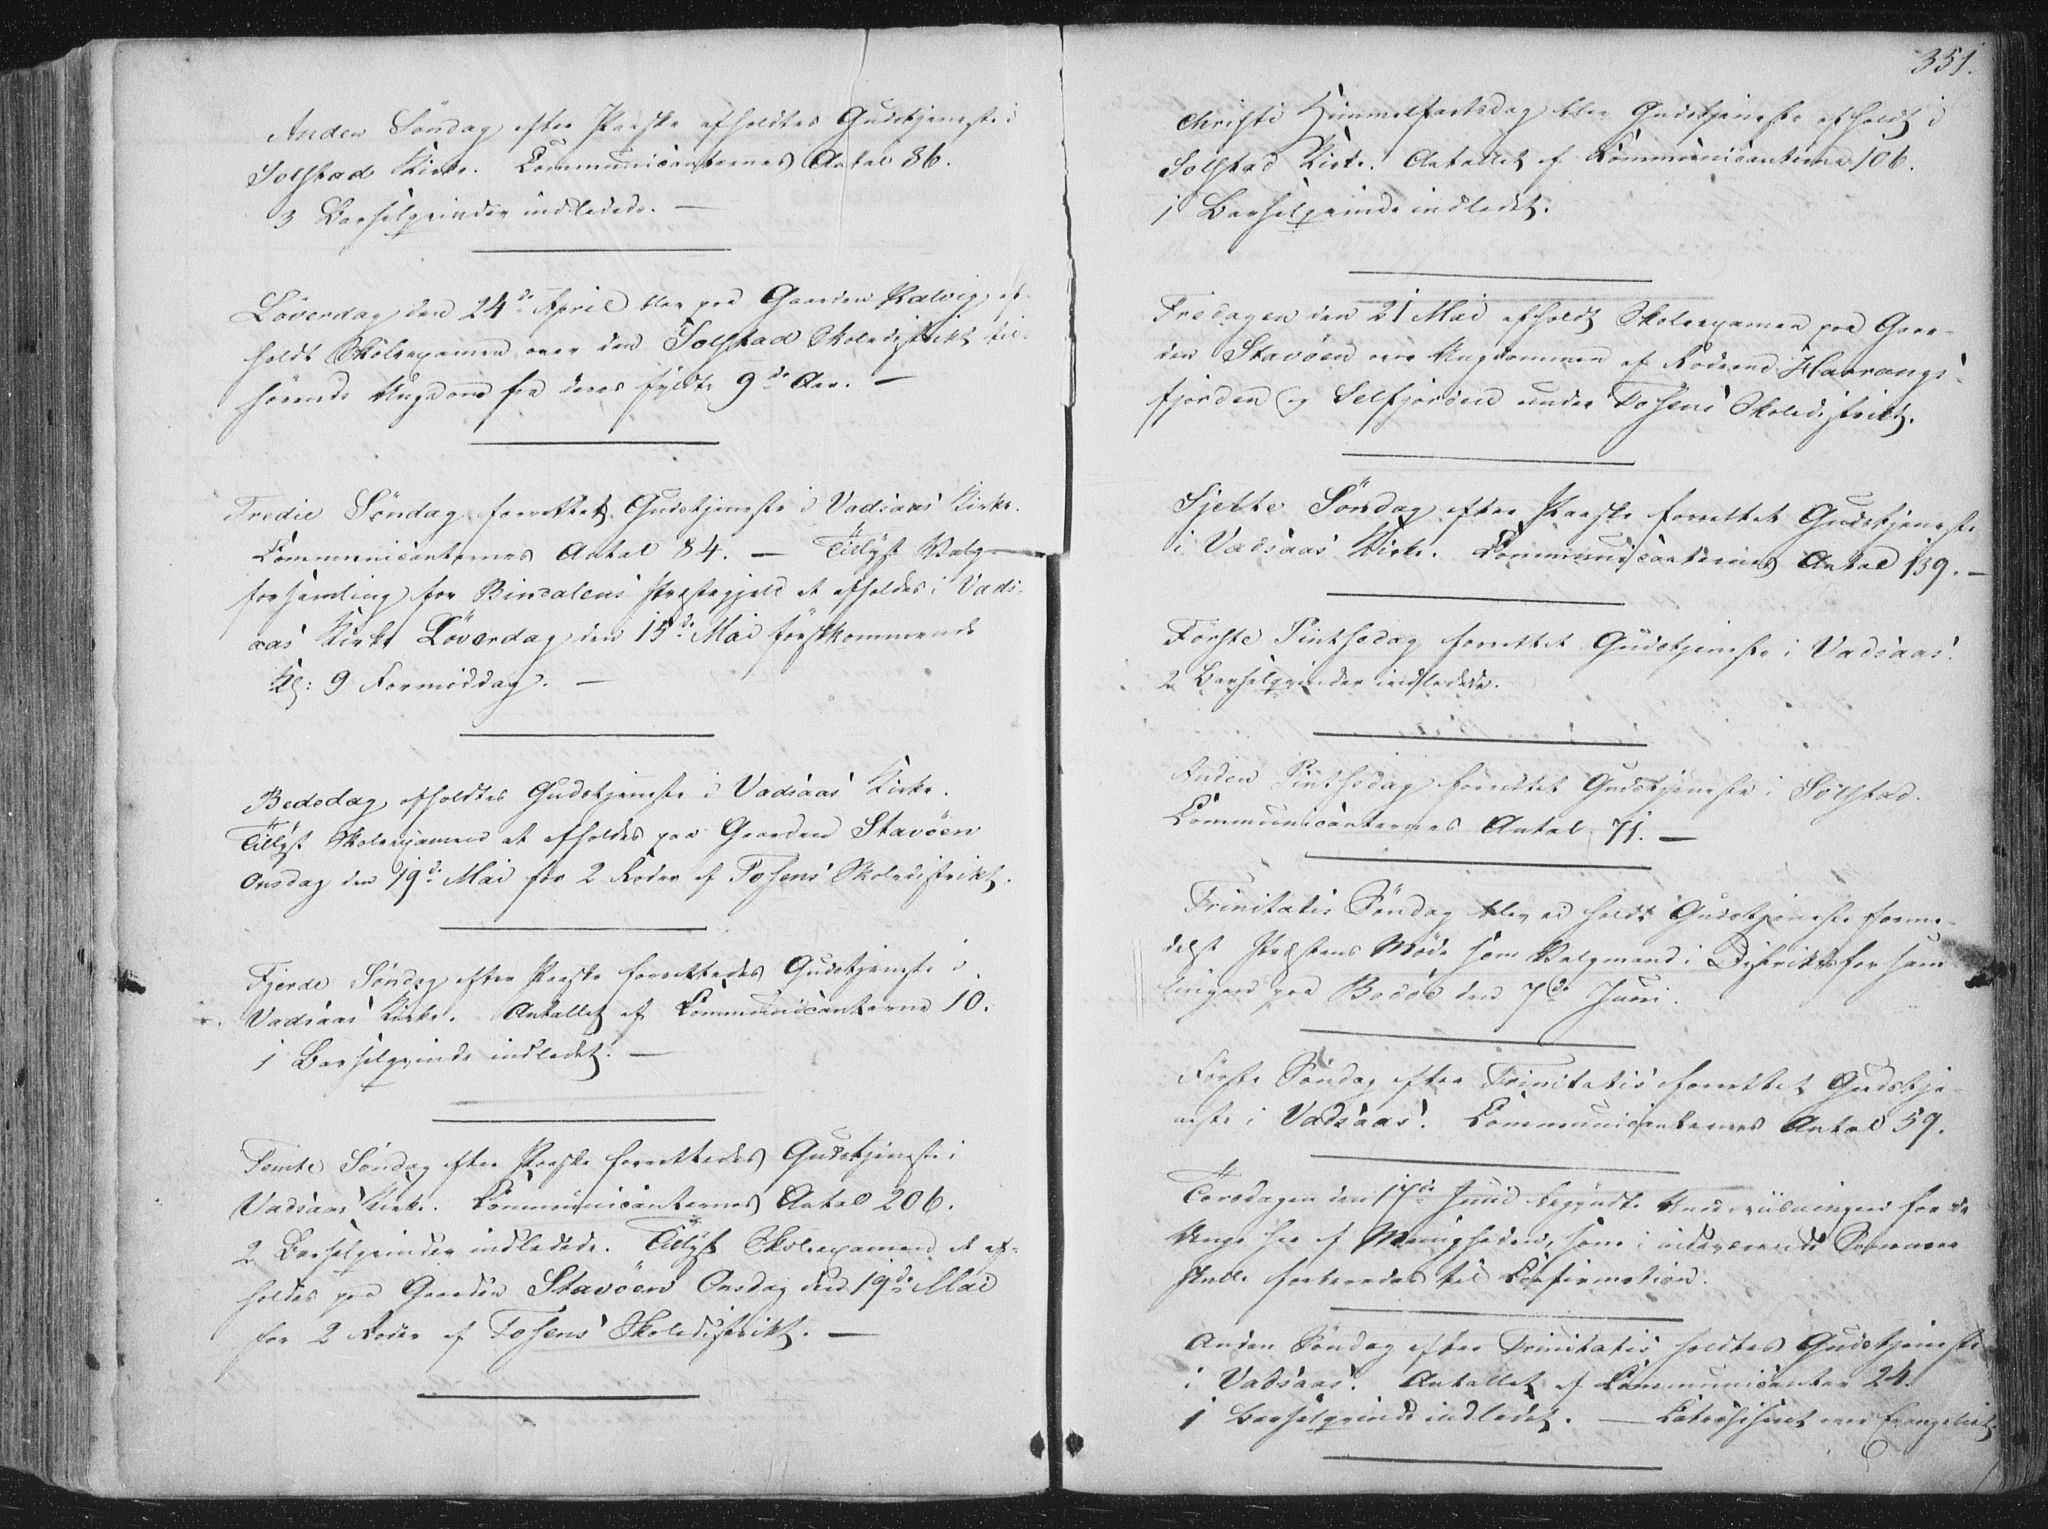 Anden Söndag efter Paaske afholdtes Gudstjeneste i
Solstad Kirke. Communicanternes Antal 86.
3 Barselqvinder indledede. —
Löverdag den 24de April blev paa Gaarden Kalvig af-
holdt Skoleexamen over den Solstad Skoledistrikt til-
hörende Ungdom fra deres fyldte 9de Aar. —
Tredie Söndag forrettet Gudstjeneste i Vadsaas Kirke.
Communicanternes Antal 84. — Tillyst Valg-
forsamling for Bindalens Præstegjeld at afholdes i Vads-
aas Kirke Löverdag den 15de Mai förstkommende
Kl: 9 Formiddag. —
Bededag afholdtes Gudstjeneste i Vadsaas Kirke.
Tillyst Skoleexamen at afholdes paa Gaarden Stavöen
Onsdag den 19de Mai for 2 Roder af Tosens Skoledistrikt.
Fjerde Söndag efter Paaske forrettedes Gudstjeneste i
Vadsaas Kirke. Antallet af Communicanterne 10.
1 Barselqvinde indledet. —
Femte Söndag efter Paaske forrettedes Gudstjeneste i
Vadsaas Kirke. Communicanternes Antal 206.
2 Barselqvinder indledede. Tillyst Skoleexamen at af-
holdes paa Gaarden Stavöen Onsdag den 19de Mai
for 2 Roder af Tosens Skoledistrikt. —
351.
Christi Himmelfartsdag blev Gudstjeneste afholdt i
Solstad Kirke. Antallet af Communicanterne 106.
1 Barselqvinde indledet.
Fredagen den 21 Mai afholdt Skoleexamen paa Gaar-
den Stavöen over Ungdommen af Roderne Harrangs-
fjorden og Selfjorden under Tosens Skoledistrikt.
Sjette Söndag efter Paaske forrettet Gudstjeneste
i Vadsaas Kirke. Communicanternes Antal 139. —
Förste Pintsedag forrettet Gudstjeneste i Vadsaas.
2 Barselqvinder indledede.
Anden Pintsedag forrettet Gudstjeneste i Solstad.
Communicanternes Antal 71. —
Trinitatis Söndag blev ei holdt Gudstjeneste forme-
delst Præstens Möde som Valgmand i Distriktsforsam-
lingen paa Bodöe den 7de Juni.
Förste Söndag efter Trinitatis forrettet Gudstje-
neste i Vadsaas. Communicanternes Antal 59.
Torsdagen den 17de Juni begyndte Underviisningen for de
Unge her af Menigheden, som i indeværende Sommer
skulle forberedes til Confirmation.
Anden Söndag efter Trinitatis holdtes Gudstjeneste
i Vadsaas. Antallet af Communicanter 24.
1 Barselqvinde indledet. — Catechiseret over Evangeliet.